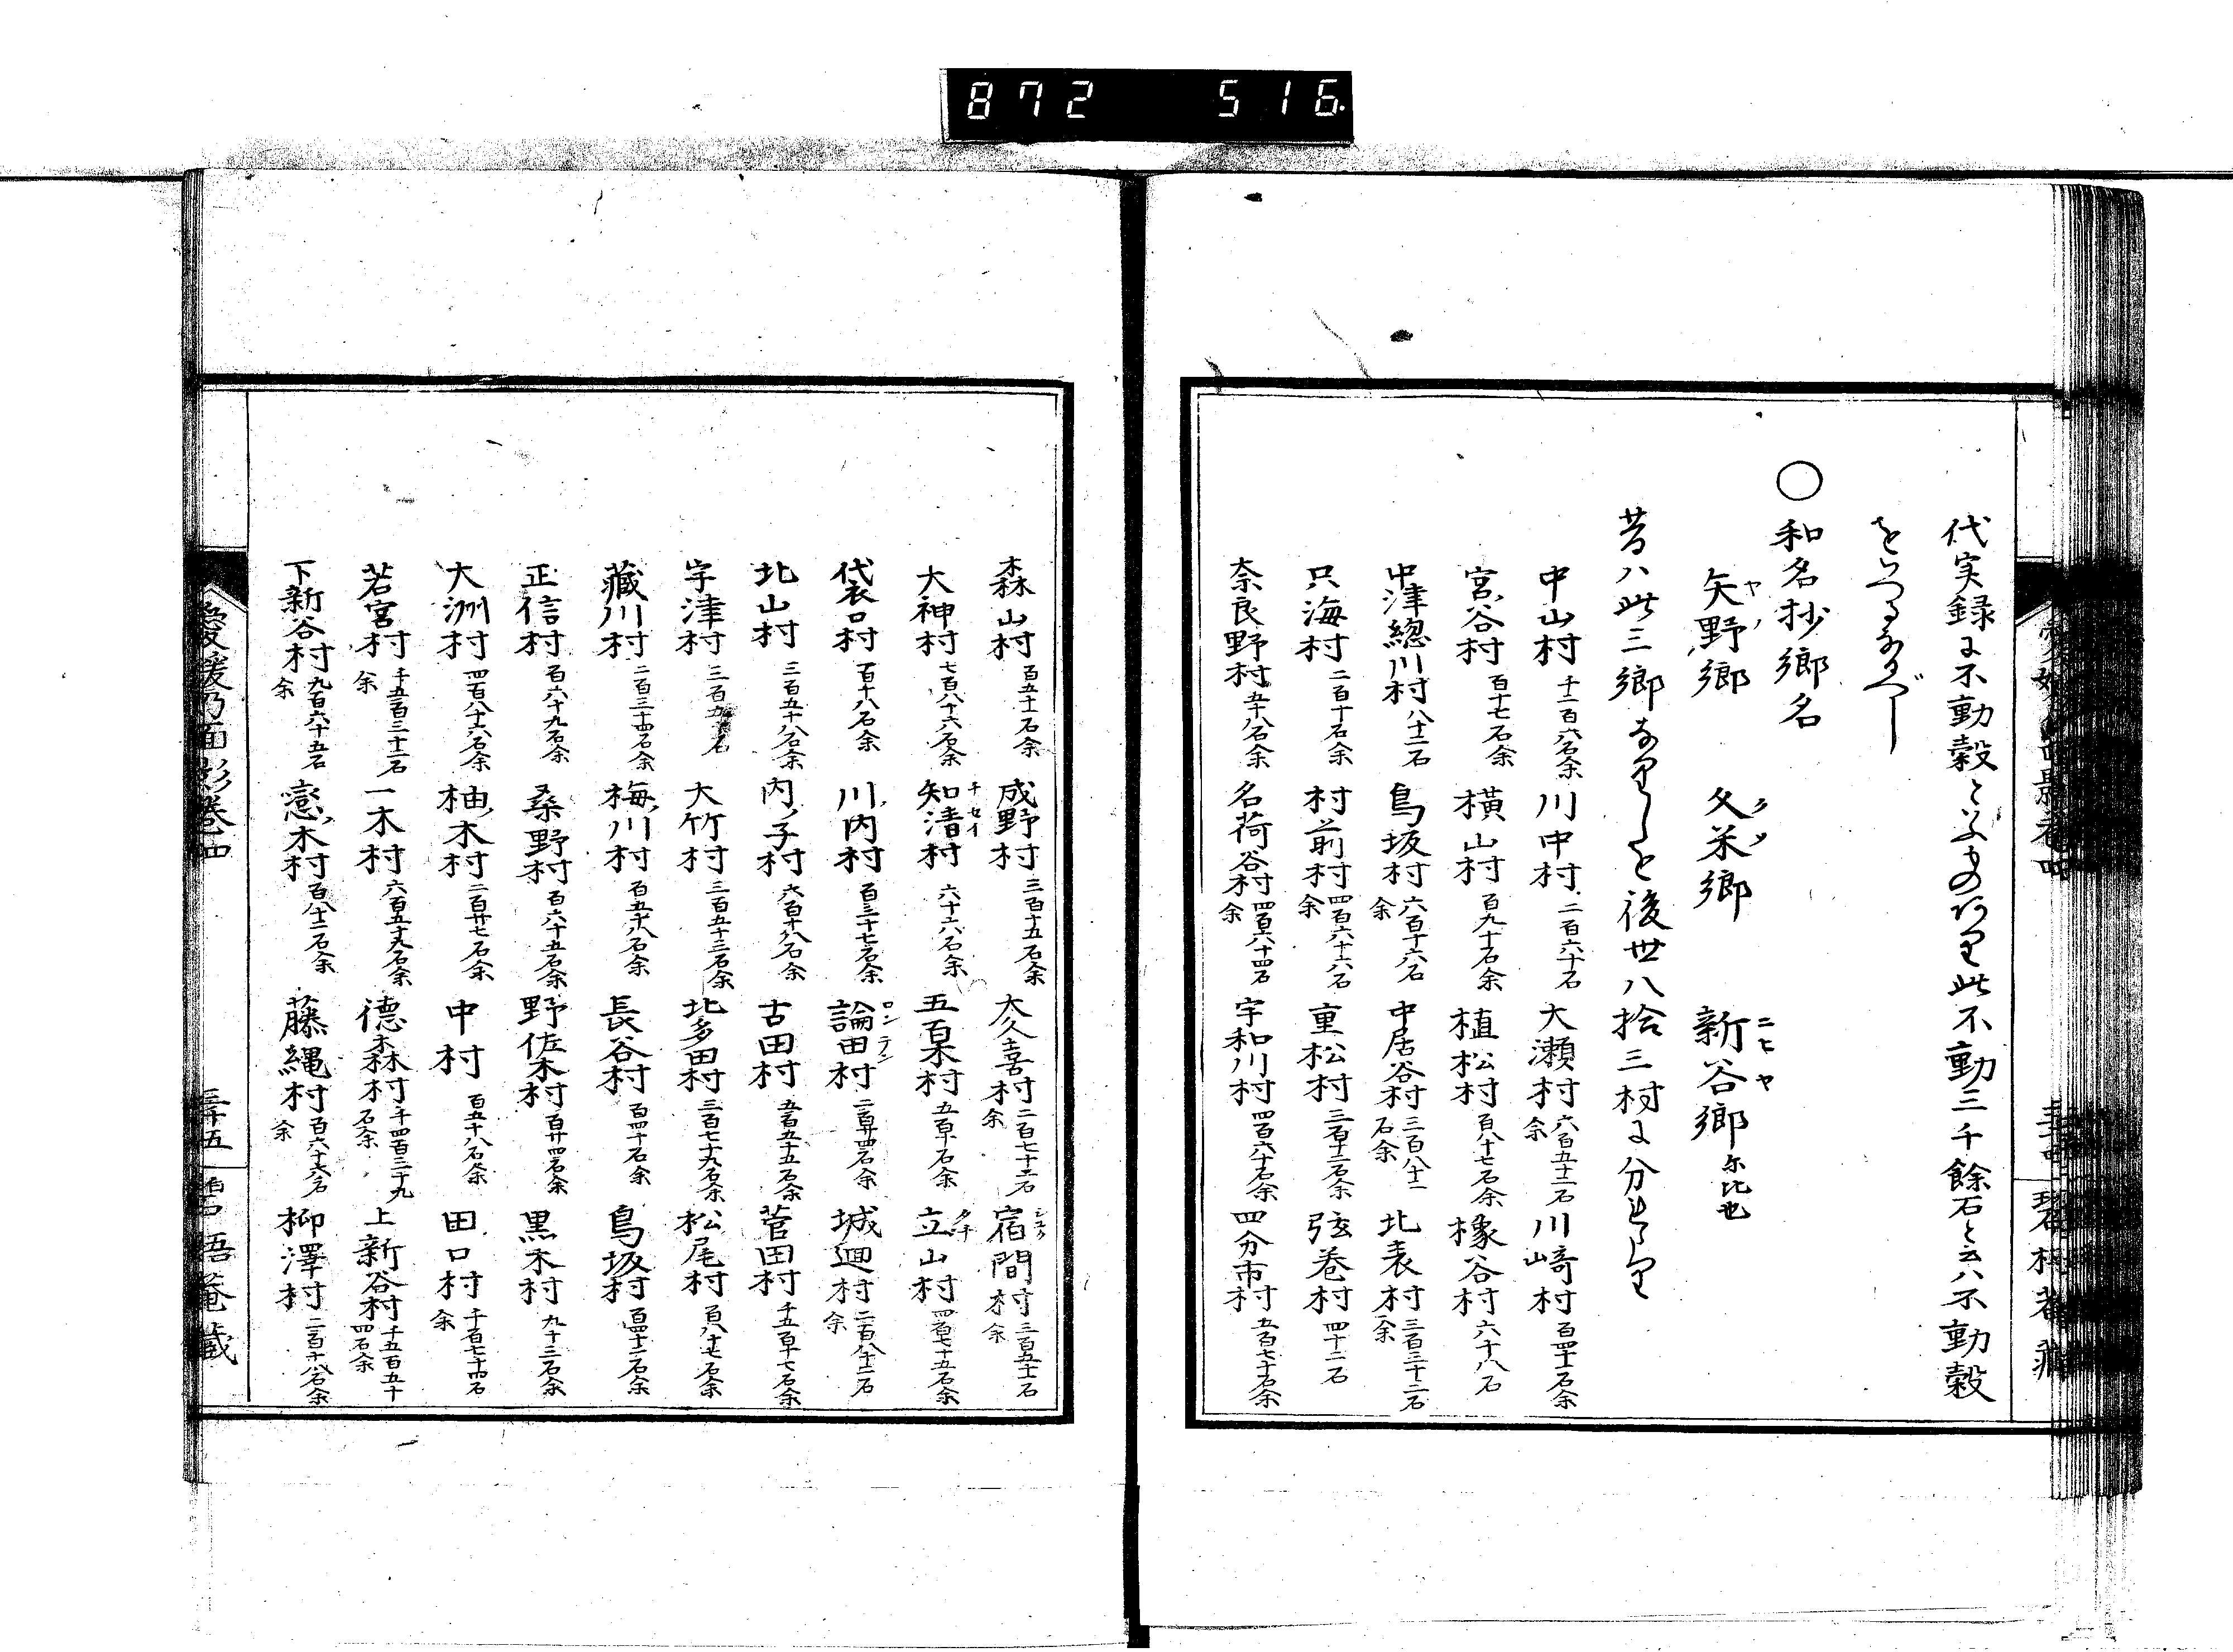 872 516
代実録に不動穀といふものあり此不動三千餘石と云ハ不動穀
をいへるなるべし
○和名抄郷名
矢野郷 ヤノ 久米郷 クメ 新谷郷 ニヒヤ 尓比也
昔ハ此三郷なりしを後世八拾三村に分れたり
中山村 千二百六石余 川中村 二百六十石 大瀬村 六百五十二石余 川﨑村 百四十石余
宮ノ谷村 百十七石余 横山村 百九十石余 植松村 百八十七石余 橡谷村 六十八石
中津總川村 八十二石 鳥坂村 六百十六石余 中居谷村 三百八十二石余 北表村 三百三十二石余
只海村 二百十石余 村前村 四百六十六石余 重松村 三百十二石余 弦巻村 四十二石
奈良野村 五十八石余 名荷谷村 四百六十四石余 宇和川村 四百六十石余 四分市村 五百七十石余
森山村 百五十二石余 成野村 三百十五石余 大久喜村 二百七十二石余 宿間村 シユク 三百五十二石余
大神村 七百八十六石余 知清村 チセイ 六十六石余 五百木村 五百十石余 立山村 タチ 四百七十五石余
袋口村 百十八石余 川ノ内村 百三十七石余 論田村 ロンデン 二百廿四石余 城廻村 二百八十二石余
北山村 三百五十八石余 内ノ子村 六百十八石余 古田村 五百五十五石余 菅田村 千五百十七石余
宇津村 大竹村 三百五十三石余 北多田村 三百七十九石余 松尾村 百八十七石余
藏川村 二百三十四石余 梅ノ川村 百五十八石余 長谷村 百四十石余 鳥坂村 百四十二石余
正信村 百六十九石余 桑野村 百六十五石余 野佐来村 百廿四石余 黒木村 九十三石余
大洲村 四百八十六石余 柚ノ木村 二百廿七石余 中村 百五十八石余 田口村 千百七十四石余
若宮村 千五百三十二石余 一木村 六百五十九石余 德森村 千四百三十九石余 上新谷村 千五百五十四石余
下新谷村 九百六十五石余 恋ノ木村 百八十二石余 藤縄村 百六十六石余 柳澤村 二百十八石余
愛媛乃面影巻四 三十五 悟菴藏